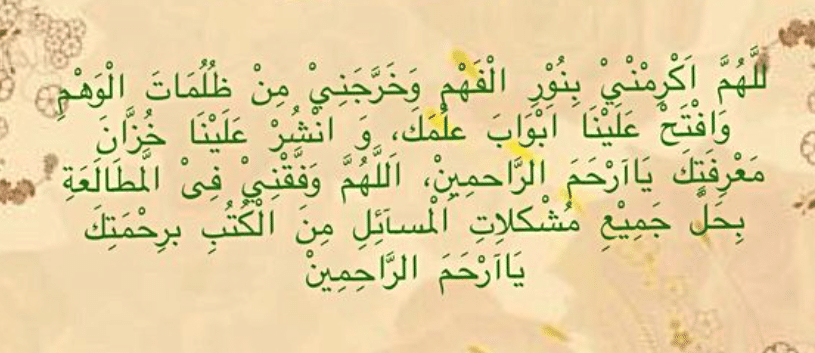 للَّهُمَّ اَكْرِمْنْيْ بِنُوْرِ الْفَهْمِ وَخَرَّجَنِيْ مِنْ ظُلُمَاتَ الْوَهْمِ
وَافْتَحْ عَلَيْنَا اَبْوَابَ علْمَكَ، وَ انْشُرْ عَلَيْنَا خُزَّانَ
مَعْرِفَتِكَ يَااَرْحَمَ الرَّاحمِيْنْ، اَللَّهُمَّ وَفَّقْنِيْ فِىْ الْمَطَالَعَةِ
بِحَلِّ جَمِيْعِ مُشْكلاِتِ الْمسآئِلِ مِنَ الْكُتُبِ برِحْمَتِكَ
يَااَرْحَمَ الرَّاحِمِيِنْ